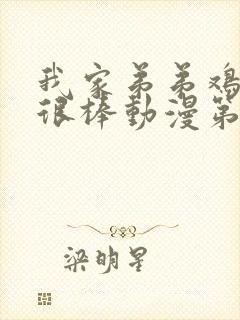 我家弟弟鸡
很棒動漫第
梁明星